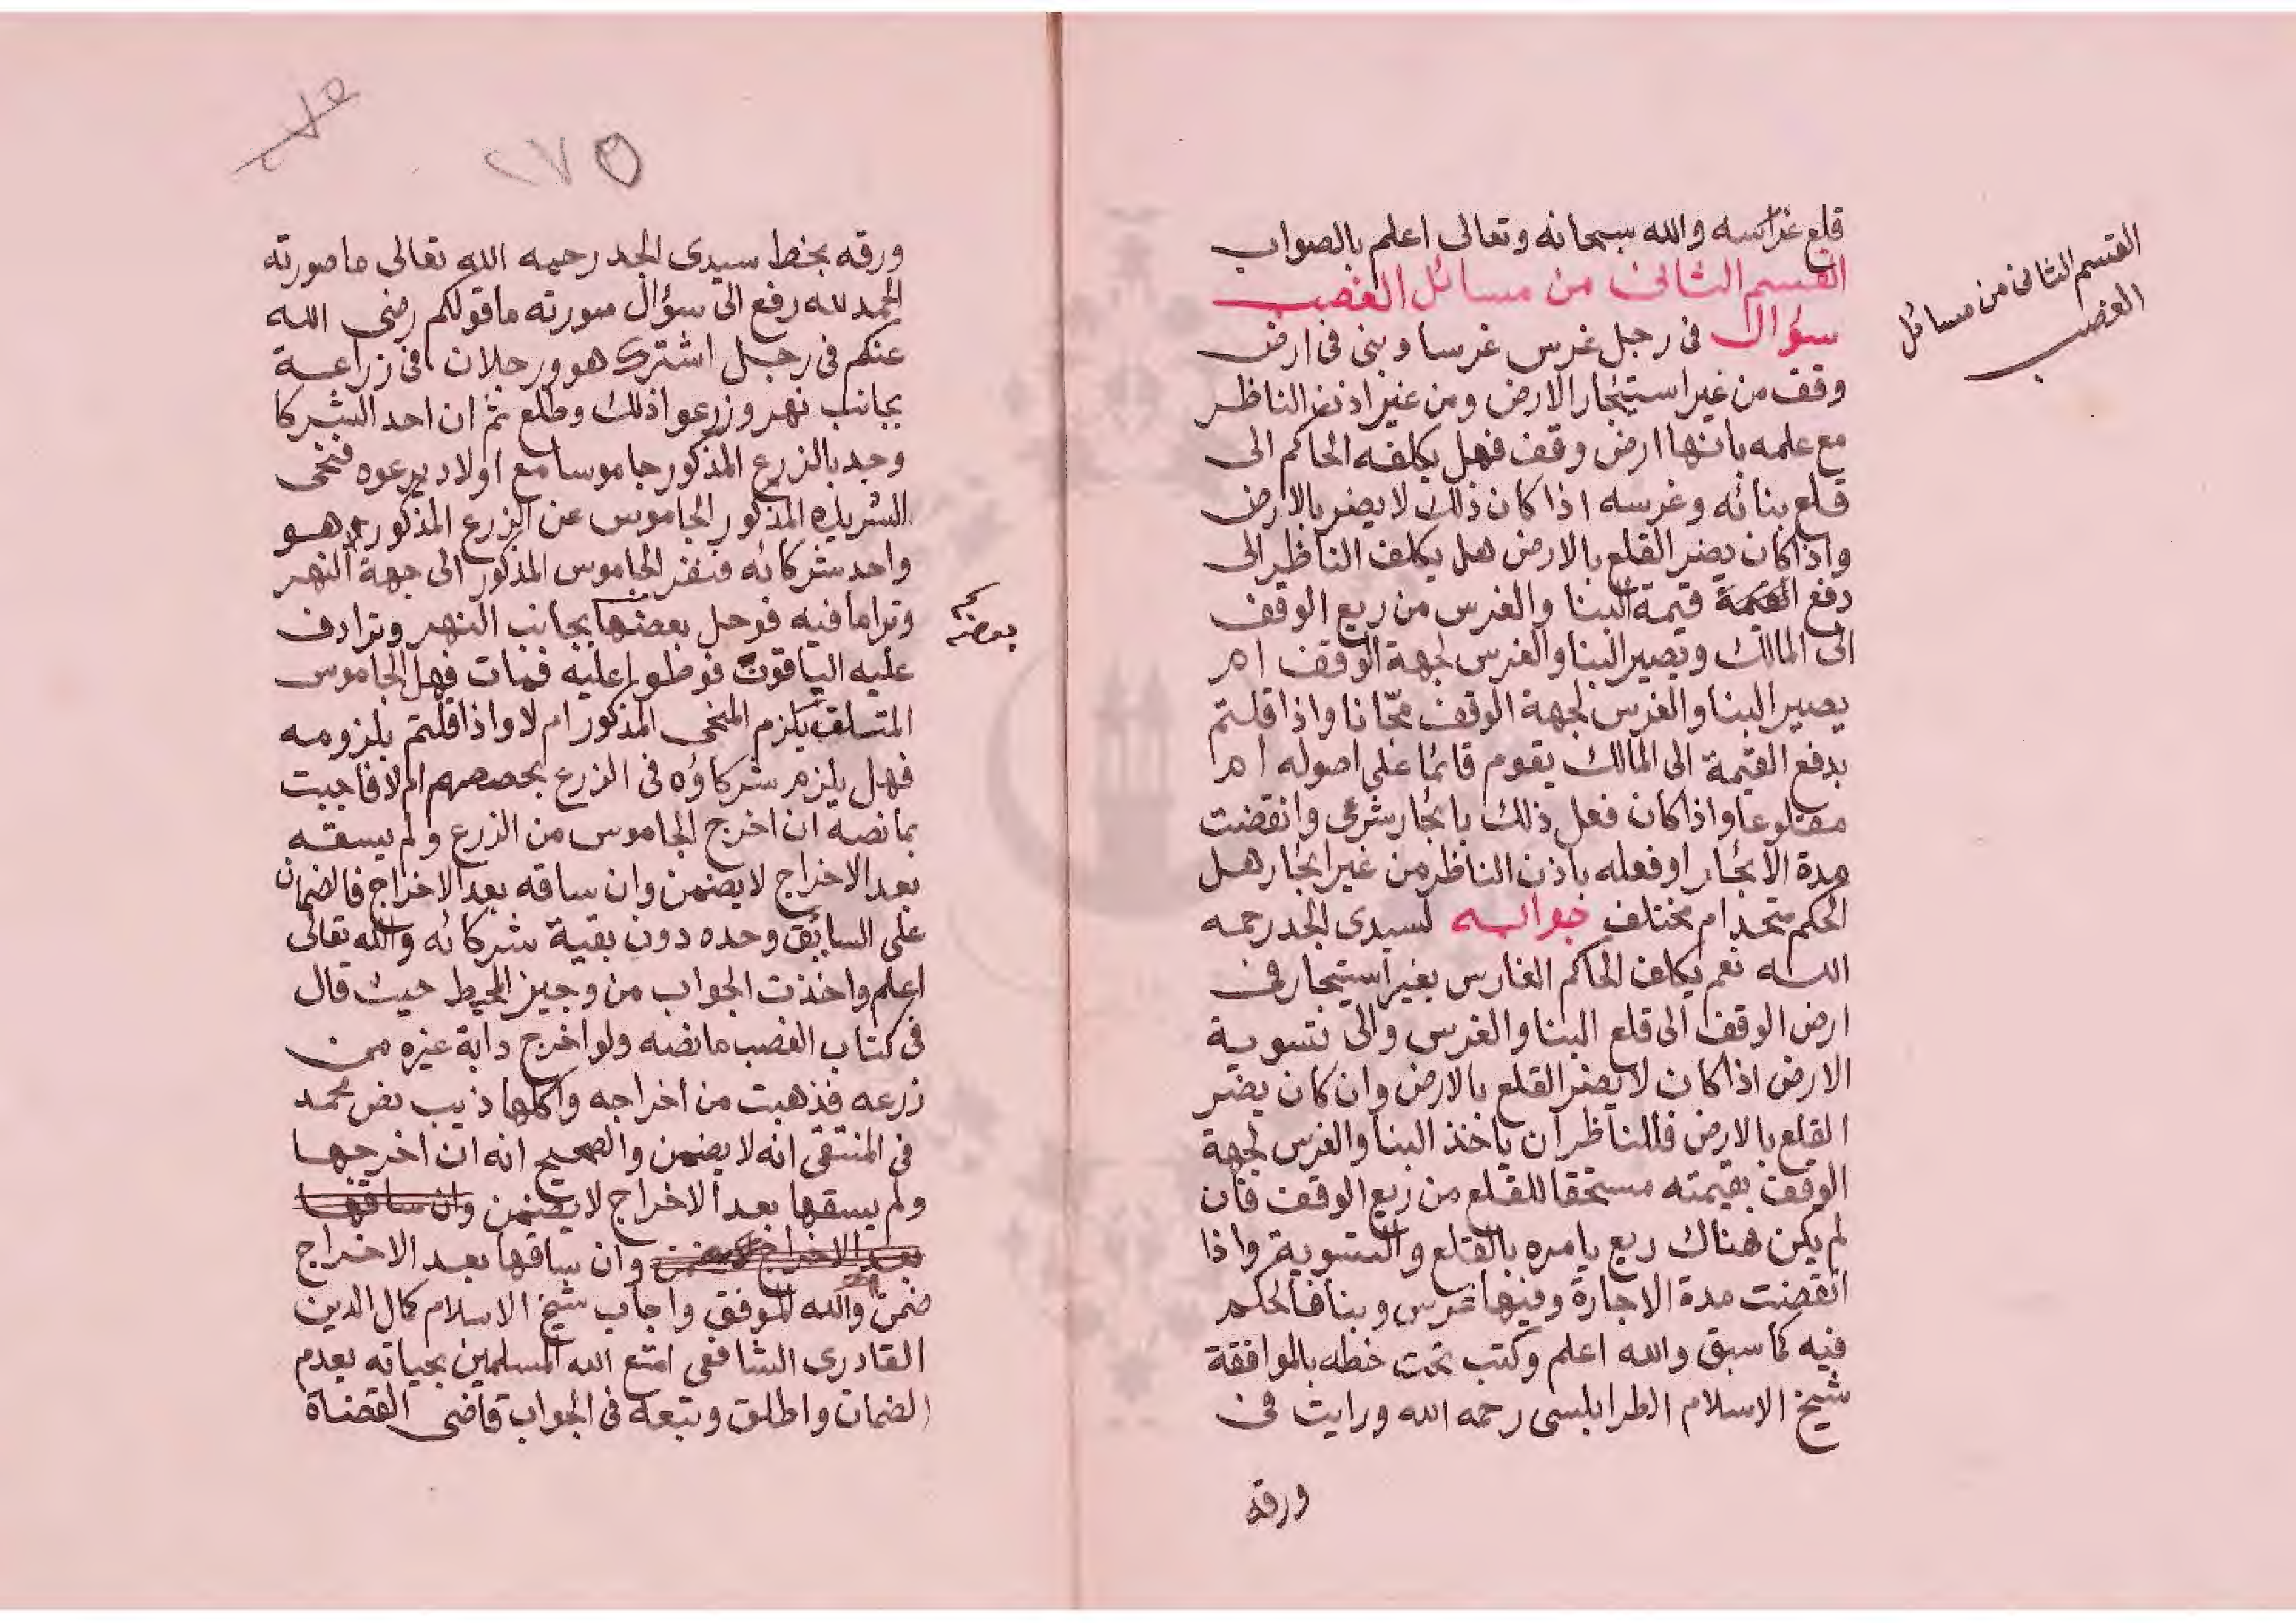 قلع غراسه والله سبحانه وتعالى اعلم بالصواب
القسم الثانى من مسائل الغصب
سؤال فى رجل غرس غرسا وبنى فى ارض
وقف من غير استيجار الارض ومن غير اذن الناظر
مع علمه بانها ارض وقف فهل يكلفه الحاكم الى
قلع بنائه وغرسه اذا كان ذلك لا يضر بالارض
واذا كان يضر القلع بالارض هل يكلف الناظر الى
دفع القيمة قيمة البنا والغرس من ريع الوقف
الى المالك ويصير البنا والغرس لجهة الوقف ام
يصير البنا والغرس لجهة الوقف مجّانا واذا قلتم
بدفع القيمة الى المالك يقوم قائما على اصوله ام
مقلوعا واذا كان فعل ذلك بايجار شرعى وانقضت
مدة الايجار او فعله باذن الناظر من غير ايجار هل
الحكم متحد ام مختلف جوابه لسيدى الجد رحمه
الله نعم يكلف الحاكم الغارس بغير استيجار فى
ارض الوقف الى قلع البنا والغرس والى تسوية
الارض اذا كان لا يضر القلع بالارض وان كان يضر
القلع بالارض فللناظر ان ياخذ البنا والغرس لجهة
الوقف بقيمته مستحقا للقلع من ريع الوقف فان
لم يكن هناك ريع يامره بالقلع والتسوية واذا
انقضت مدة الاجارة وفيها غرس وبنا فالحكم
فيه كما سبق والله اعلم وكتب تحت خطه بالموافقة
شيخ الاسلام الطرابلسى رحمه الله ورايت فى
ورقه
القسم الثانى من مسائل
الغصب
٢٧٥
ورقه بخط سيدى الجد رحمه الله تعالى ما صورته
الحمد لله رفع الى سؤال صورته ما قولكم رضى الله
عنكم فى رجل اشترك هو ورجلان فى زراعة
بجانب نهر وزرعوا ذلك وطلع ثم ان احد الشركا
وجد بالزرع المذكور جاموسا مع اولاد يرعوه فنحى
الشريك المذكور الجاموس عن الزرع المذكور هو
واحد شركائه فنفر الجاموس المذكور الى جهة النهر
وتراما فيه فوحل بعضها بجانب النهر وترادف
عليه الياقوت فوطوا عليه فمات فهل الجاموس
المتلف يلزم المنحى المذكور ام لا واذا قلتم بلزومه
فهل يلزم شركاؤه فى الزرع بحصصهم ام لا فاجبت
بما نصه ان اخرج الجاموس من الزرع ولم يسقه
بعد الاخراج لا يضمن وان ساقه بعد الاخراج فالضمان
على السائق وحده دون بقية شركائه والله تعالى
اعلم واخذت الجواب من وجيز المحيط حيث قال
فى كتاب الغصب ما نصه ولو اخرج دابة غيره من
زرعه فذهبت من اخراجه واكلها ذيب نص محمد
فى المنتقى انه لا يضمن والصحيح انه ان اخرجها
ولم يسقها بعد الاخراج لا يضمن وان ساقها
بعد الاخراج لا يضمن وان ساقها بعد الاخراج
ضمن والله الموفق واجاب شيخ الاسلام كمال الدين
القادرى الشافعى امتع الله المسلمين بحياته بعدم
الضمان واطلق وتبعه فى الجواب قاضى القضاة
بعضه